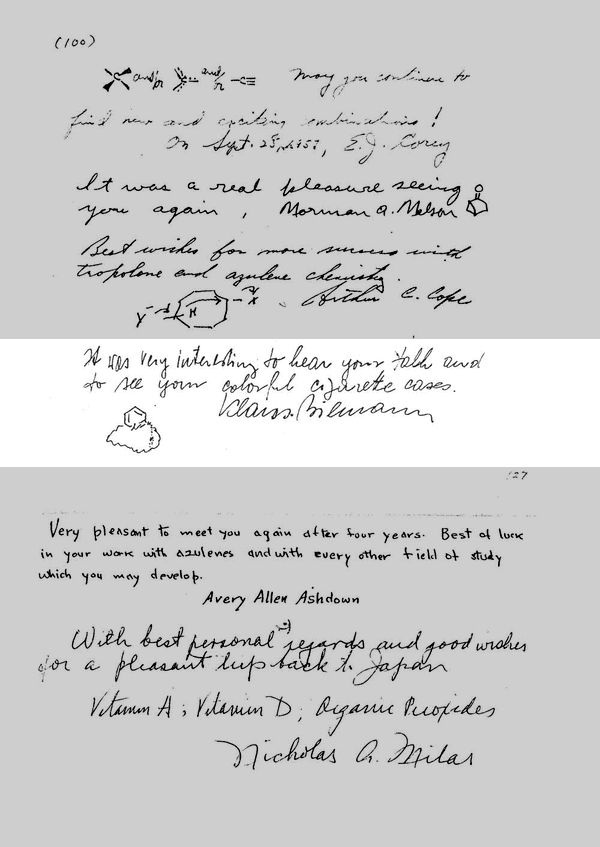 (100)
and/or and/or May you continue to
find new and exciting combinations!
On Sept. 28, 1957, E.J. Corey
It was a real pleasure seeing
you again, Norman A. Nelson
Best wishes for more success with
tropolone and azulene chemistry.
Arthur C. Cope
Y H X
It was very interesting to hear your talk and
to see your colorful cigarette cases.
Klaus Biemann
127
Very pleasant to meet you again after four years. Best of luck
in your work with azulenes and with every other field of study
which you may develop.
Avery Allen Ashdown
With best personal regards and good wishes
for a pleasant trip back to Japan
Vitamin A; Vitamin D; Organic Peroxides
Nicholas A. Milas